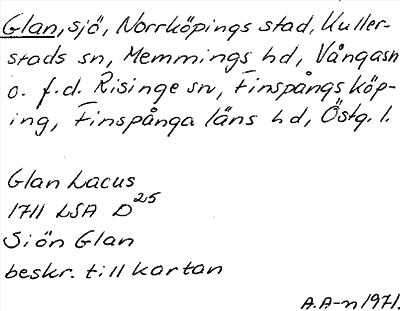 Glan, sjö, Norrköpings stad, Kuller-
stads sn, Memmings hd, Vångasn
o. f.d. Risinge sn, Finspångs köp-
ing, Finspånga läns hd, Östg. l.
Glan Lacus
1711 LSA D25
Siön Glan
beskr. till kartan
A.A-n 1971.